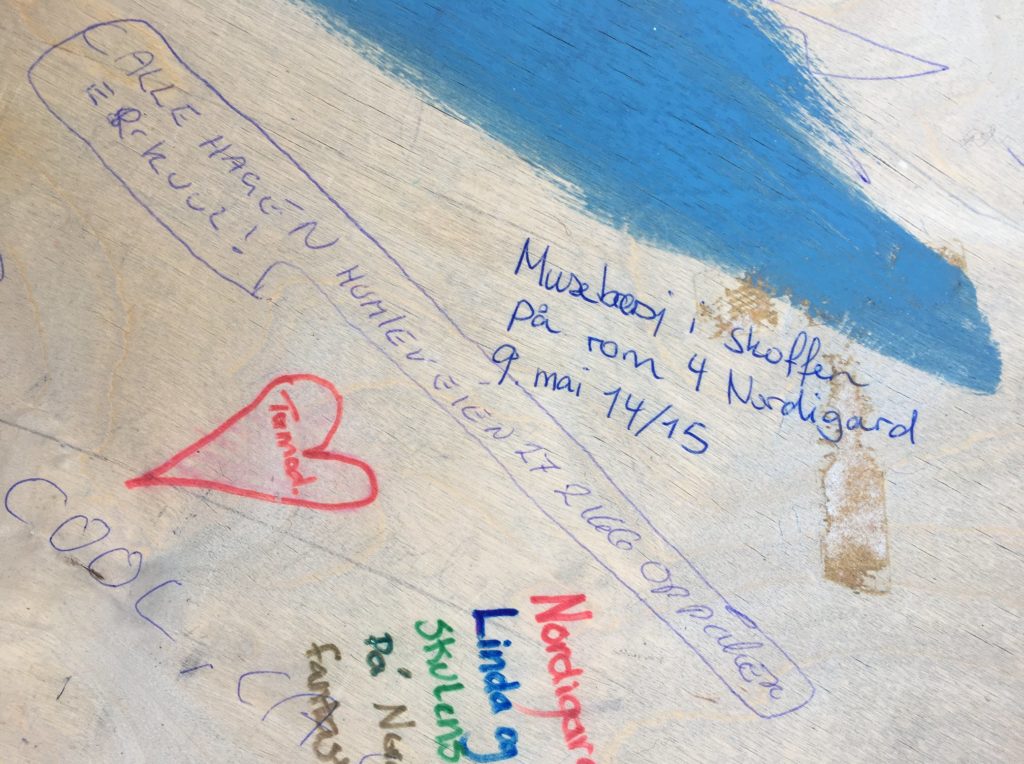 CALLE HAGEN HUMLEVEIEN 27 2166 OPPAKER
ER KUUL!
Musebæsj i skoffen
på rom 4 Nordigard
9. mai 14/15
COOL
Nordigard
Linda og
Skulens
På